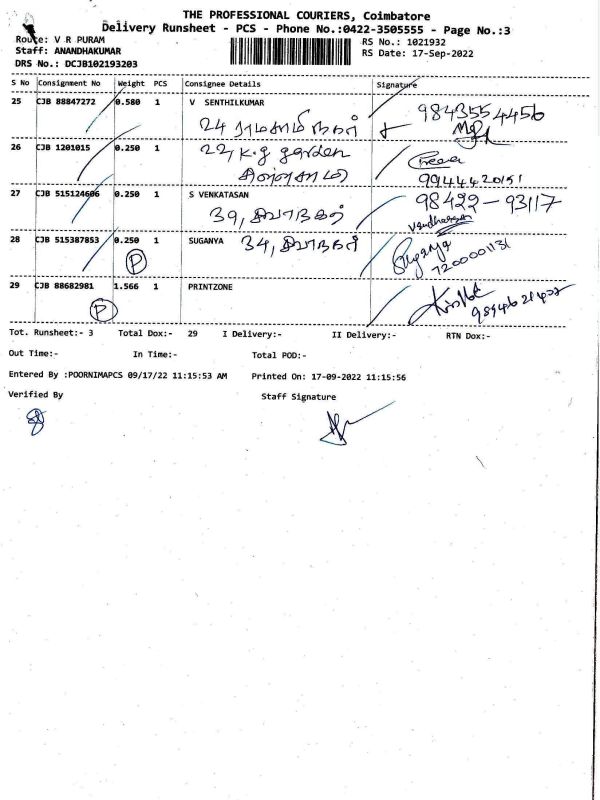 THE PROFESSIONAL COURIERS, Coimbatore
Delivery Runsheet - PCS - Phone No.:0422-3505555 - Page No.:3
Route: V R PURAM
Staff: ANANDHAKUMAR
DRS No.: DCJB102193203
RS No.: 1021932
RS Date: 17-Sep-2022
S No Consignment No Weight PCS Consignee Details Signature
25 CJB 88847272 0.580 1 V SENTHILKUMAR 9843554456
24 ராமசாமி நகர்
26 CJB 1201015 0.250 1 22, K.g garden
9944420151
27 CJB 515124606 0.250 1 S VENKATASAN 98422-93117
39, சிவாநகர்
28 CJB 515387853 0.250 1 SUGANYA 34, சிவாநகர் Suganya
P 7200001131
29 CJB 88682981 1.566 1 PRINTZONE
P
Tot. Runsheet:- 3 Total Dox:- 29 I Delivery:- II Delivery:- RTN Dox:-
Out Time:- In Time:- Total POD:-
Entered By :POORNIMAPCS 09/17/22 11:15:53 AM Printed On: 17-09-2022 11:15:56
Verified By Staff Signature